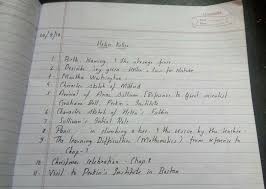 Helen Keller
1 Birth, Naming, & the strange fever
2 Describe ivy green - Helen's love for Nature
3 Martha Washington
4 Character sketch of Mildred
5 Arrival of Anne Sullivan (Reference to Great scientist
Graham Bell, Perkin's Institute
6 Character sketch of Helen's
Sullivan's Initial Role
8 in climbing a tree & the rescue by the teacher
9 The learning Difficulties (Mathematics) from reference to
Chap-7
10 Christmas Celebration - Chap 8
11 Visit to Perkin's Institute in Boston